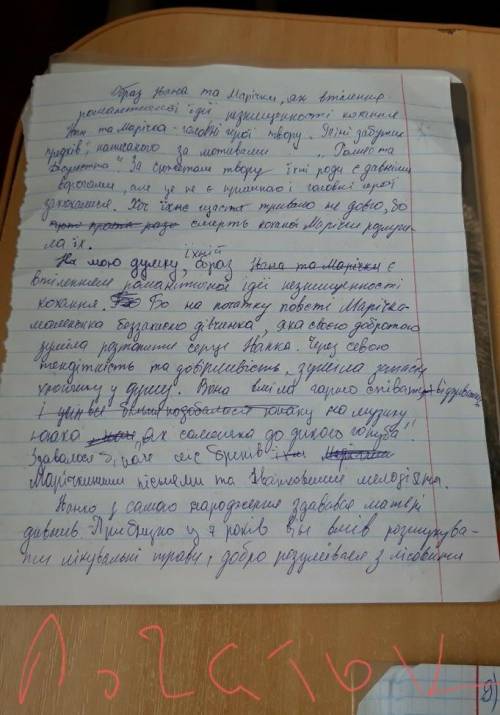 Образ Івана та Марічки, як втілення
романтичної ідеї незнищенності кохання
Іван та Марічка - головні герої твору. "Тіні забутих
предків", написаного за мотивами "Ромео та
Джульєтта". За сюжетом твору їхні роди є давніми
ворогами, але це не є причиною і головні герої
закохалися. Хоч їхнє щастя тривало не довго, бо
смерть коханої Марічки розлучи-
ла їх.
На мою думку, їхній образ Івана та Марічки є
втіленням романтичної ідеї незнищенності
кохання. Бо на початку повісті Марічка-
маленька беззахисна дівчинка, яка своєю добротою
зуміла розтопити серце Івана. Через свою
тендітність та добірливість, зуміла запасти
хлопчику у душу. Вона вміла гарно співати
на музику
юнака "як самичка до дикого голуба".
Здавалося б, наче ліс бринів
Марічкиними піснями та Івановими мелодіями.
Іванко з самого народження здавався матері
дивним. Приблизно із 7 років він вмів розшукува-
ти лікувальні трави, добре розумівся з лісовими
Початок